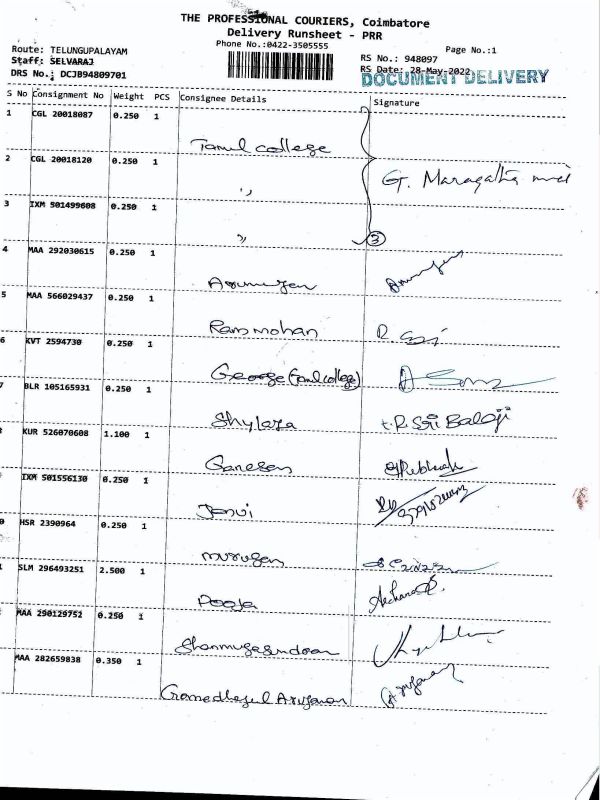 THE PROFESSIONAL COURIERS, Coimbatore
Delivery Runsheet - PRR
Phone No.:0422-3505555
Page No.:1
Route: TELUNGUPALAYAM
Staff: SELVARAJ
DRS No.: DCJB94809701
RS No.: 948097
RS Date: 28-May-2022
DOCUMENT DELIVERY
S No Consignment No Weight PCS Consignee Details Signature
1 CGL 20018087 0.250 1 Tamil college
2 CGL 20018120 0.250 1 ,, G. Maragatha
3 IXM 501499608 0.250 1 ,, 3
4 MAA 292030615 0.250 1 Arumugen
5 MAA 566029437 0.250 1 Ram mohan
6 KVT 2594730 0.250 1 George (Tamil college)
7 BLR 105165931 0.250 1 Shylaja t.R. Sri Balaji
KUR 526070608 1.100 1 Ganesen
IXM 501556130 0.250 1
0 HSR 2390964 0.250 1 murugen
SLM 296493251 2.500 1 Pooja
MAA 290129752 0.250 1
MAA 282659838 0.350 1